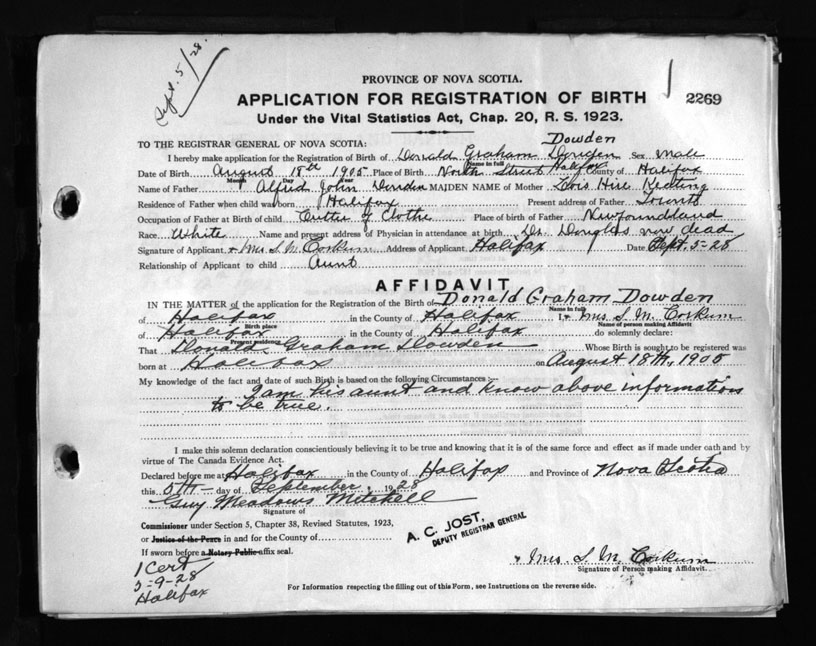 Sept. 5/28.
PROVINCE OF NOVA SCOTIA.
APPLICATION FOR REGISTRATION OF BIRTH 2269
Under the Vital Statistics Act, Chap. 20, R. S. 1923.
Dowden
TO THE REGISTRAR GENERAL OF NOVA SCOTIA:
I hereby make application for the Registration of Birth of Donald Graham Sex Male
Name in full
Date of Birth August 18th 1905 Place of Birth North Street Halifax County of Halifax
Month Day Year
Name of Father Alfred John MAIDEN NAME of Mother Lois Keating
Residence of Father when child was born Halifax Present address of Father
Occupation of Father at Birth of child Cutter of Clothe Place of birth of Father Newfoundland
Race White Name and present address of Physician in attendance at birth Dr. Douglas now dead
Signature of Applicant x Mrs. S. M. Corkum Address of Applicant Halifax Date Sept. 5-28
Relationship of Applicant to child Aunt
AFFIDAVIT
IN THE MATTER of the application for the Registration of the Birth of Donald Graham Dowden
Name in full
of Halifax in the County of Halifax I x Mrs S. M. Corkum
Birth place Name of person making Affidavit
of Halifax in the County of Halifax do solemnly declare:
Present residence
That Donald Graham Dowden Whose Birth is sought to be registered was
born at Halifax on August 18th, 1905
My knowledge of the fact and date of such Birth is based on the following Circumstances:-
I am his aunt and know above information
to be true.
I make this solemn declaration conscientiously believing it to be true and knowing that it is of the same force and effect as if made under oath and by
virtue of The Canada Evidence Act.
Declared before me at Halifax in the County of Halifax and Province of Nova Scotia
this 5th day of September, 1928
Guy Meadows Mitchell
Signature of
Commissioner under Section 5, Chapter 38, Revised Statutes, 1923,
or Justice of the Peace in and for the County of
If sworn before a Notary Public affix seal.
A. C. JOST,
DEPUTY REGISTRAR GENERAL
x Mrs. S. M. Corkum
Signature of Person making Affidavit.
1 Cert
5-9-28
Halifax
For Information respecting the filling out of this Form, see Instructions on the reverse side.